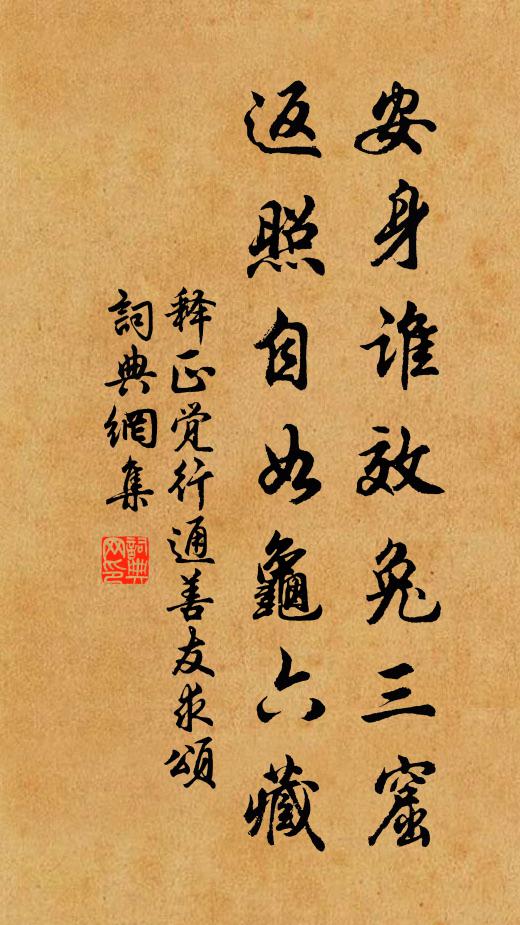 安身谁效兔三窟
返照自如龜六藏
释正觉行通善友求頌
詞典網集
詞典网印